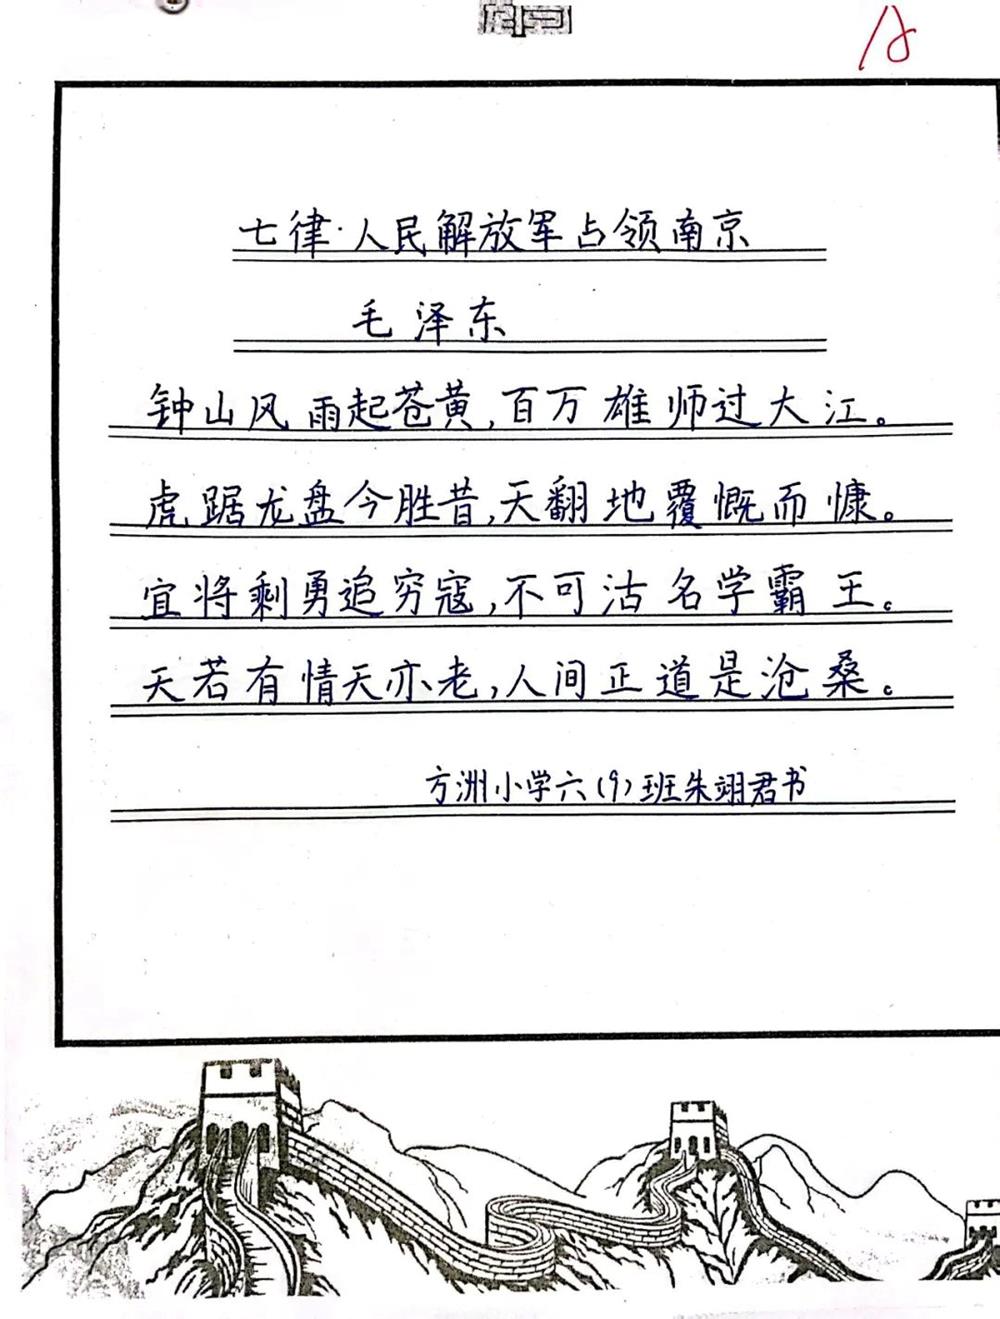 A
七律·人民解放军占领南京
毛泽东
钟山风雨起苍黄,百万雄师过大江。
虎踞龙盘今胜昔,天翻地覆慨而慷。
宜将剩勇追穷寇,不可沽名学霸王。
天若有情天亦老,人间正道是沧桑。
方洲小学六(9)班朱翊君书